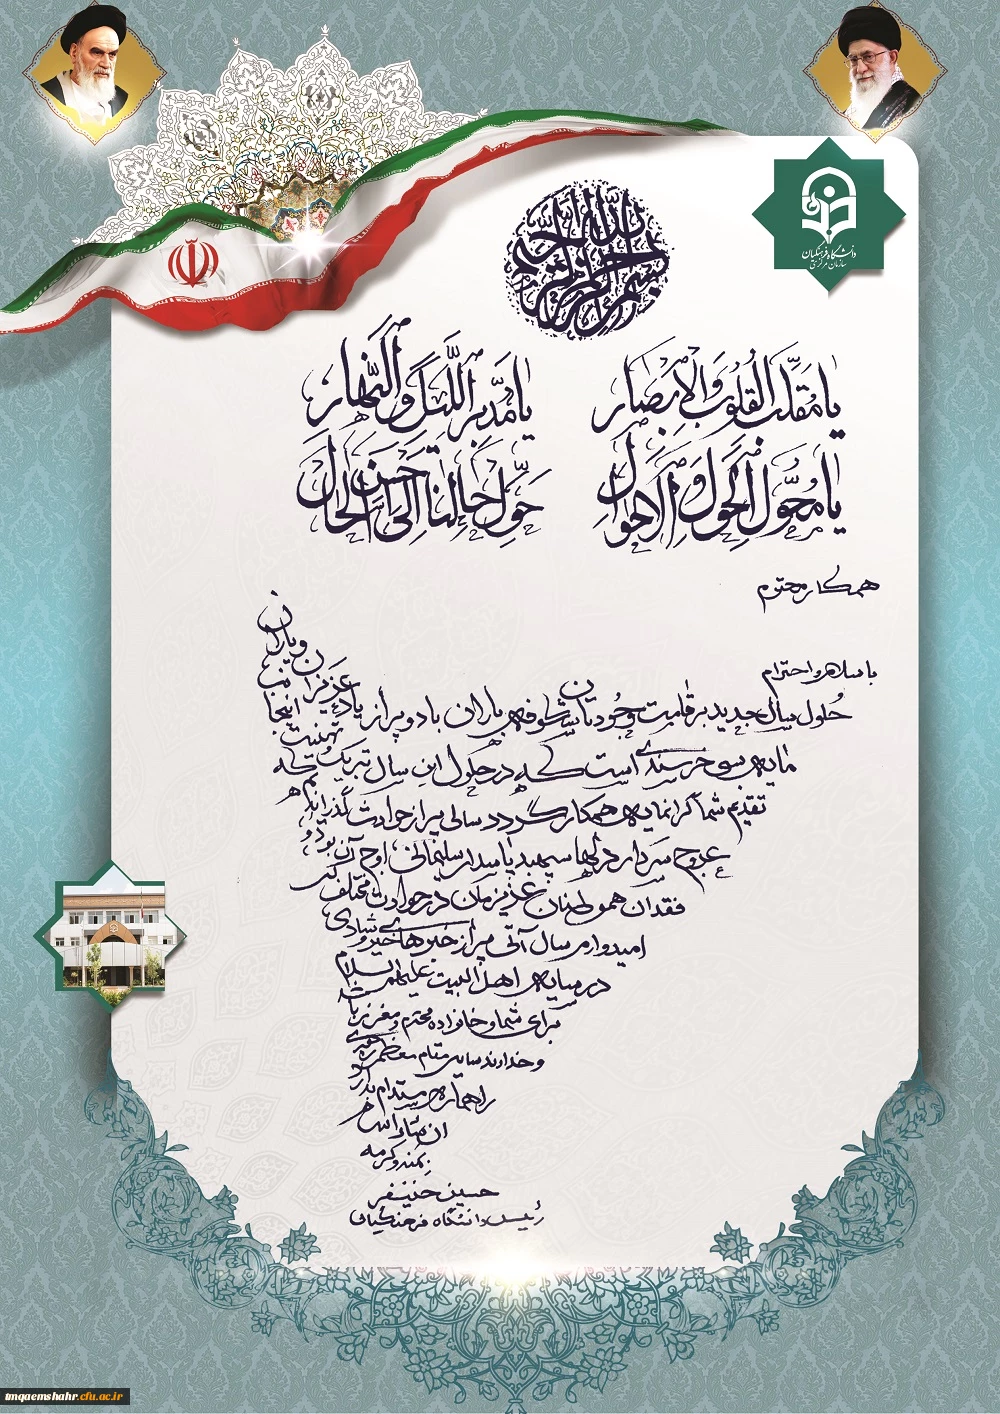 بسم الله الرحمن الرحیم
دانشگاه فرهنگیان
سازمان مرکزی
یا مقلب القلوب و الابصار یا مدبر اللیل و النهار
یا محول الحول و الاحوال حول حالنا الی احسن الحال
همکار محترم
با سلام و احترام
حلول سال جدید بر قامت وجودتان شکوفه باران باد و پر از یاد عزیزان و یاران
مایه بسی خرسندی است که در حلول این سال تبریک و تهنیت
تقدیم شما گرانمایه همکار گردد سالی پر از حوادث گذراندیم که
عروج سردار دلها سپهبد پاسدار سلیمانی اوج آن بود و
فقدان هموطنان عزیزمان در حوادث مختلف
امیدوارم سال آتی پر از خبرهای خیر و شادی
در سایه اهل البیت علیهم السلام
برای شما و خانواده محترم و معزز باشد
و خداوند سایه مقام معظم رهبری
را همواره مستدام بدارد
ان شاء الله
بمنه و کرمه
حسین خنیفر
رئیس دانشگاه فرهنگیان
tmqaemshahr.cfu.ac.ir